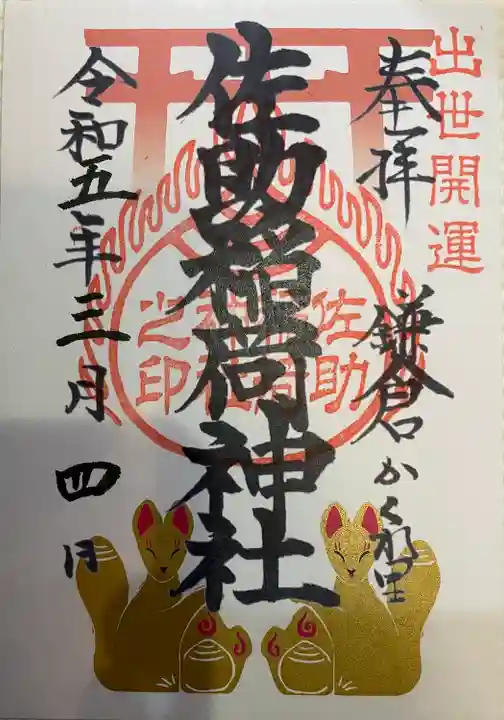 出世開運
奉拝
鎌倉かくれ里
佐助稲荷神社
佐助稲荷神社之印
令和五年三月四日